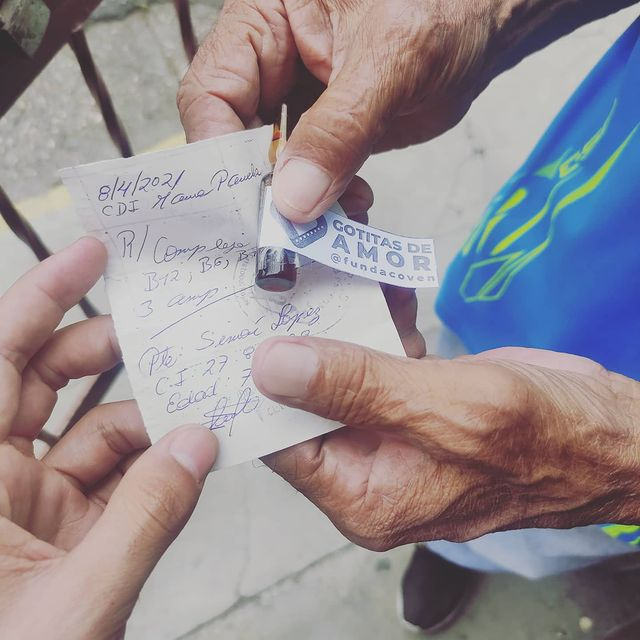 8/4/2021
CDI Mama Pancha
R/ Complejo
B12, B6, B
3 amp
Pte: Simón López
C.I 27 8
Edad: 7
GOTITAS DE
AMOR
@fundacoven